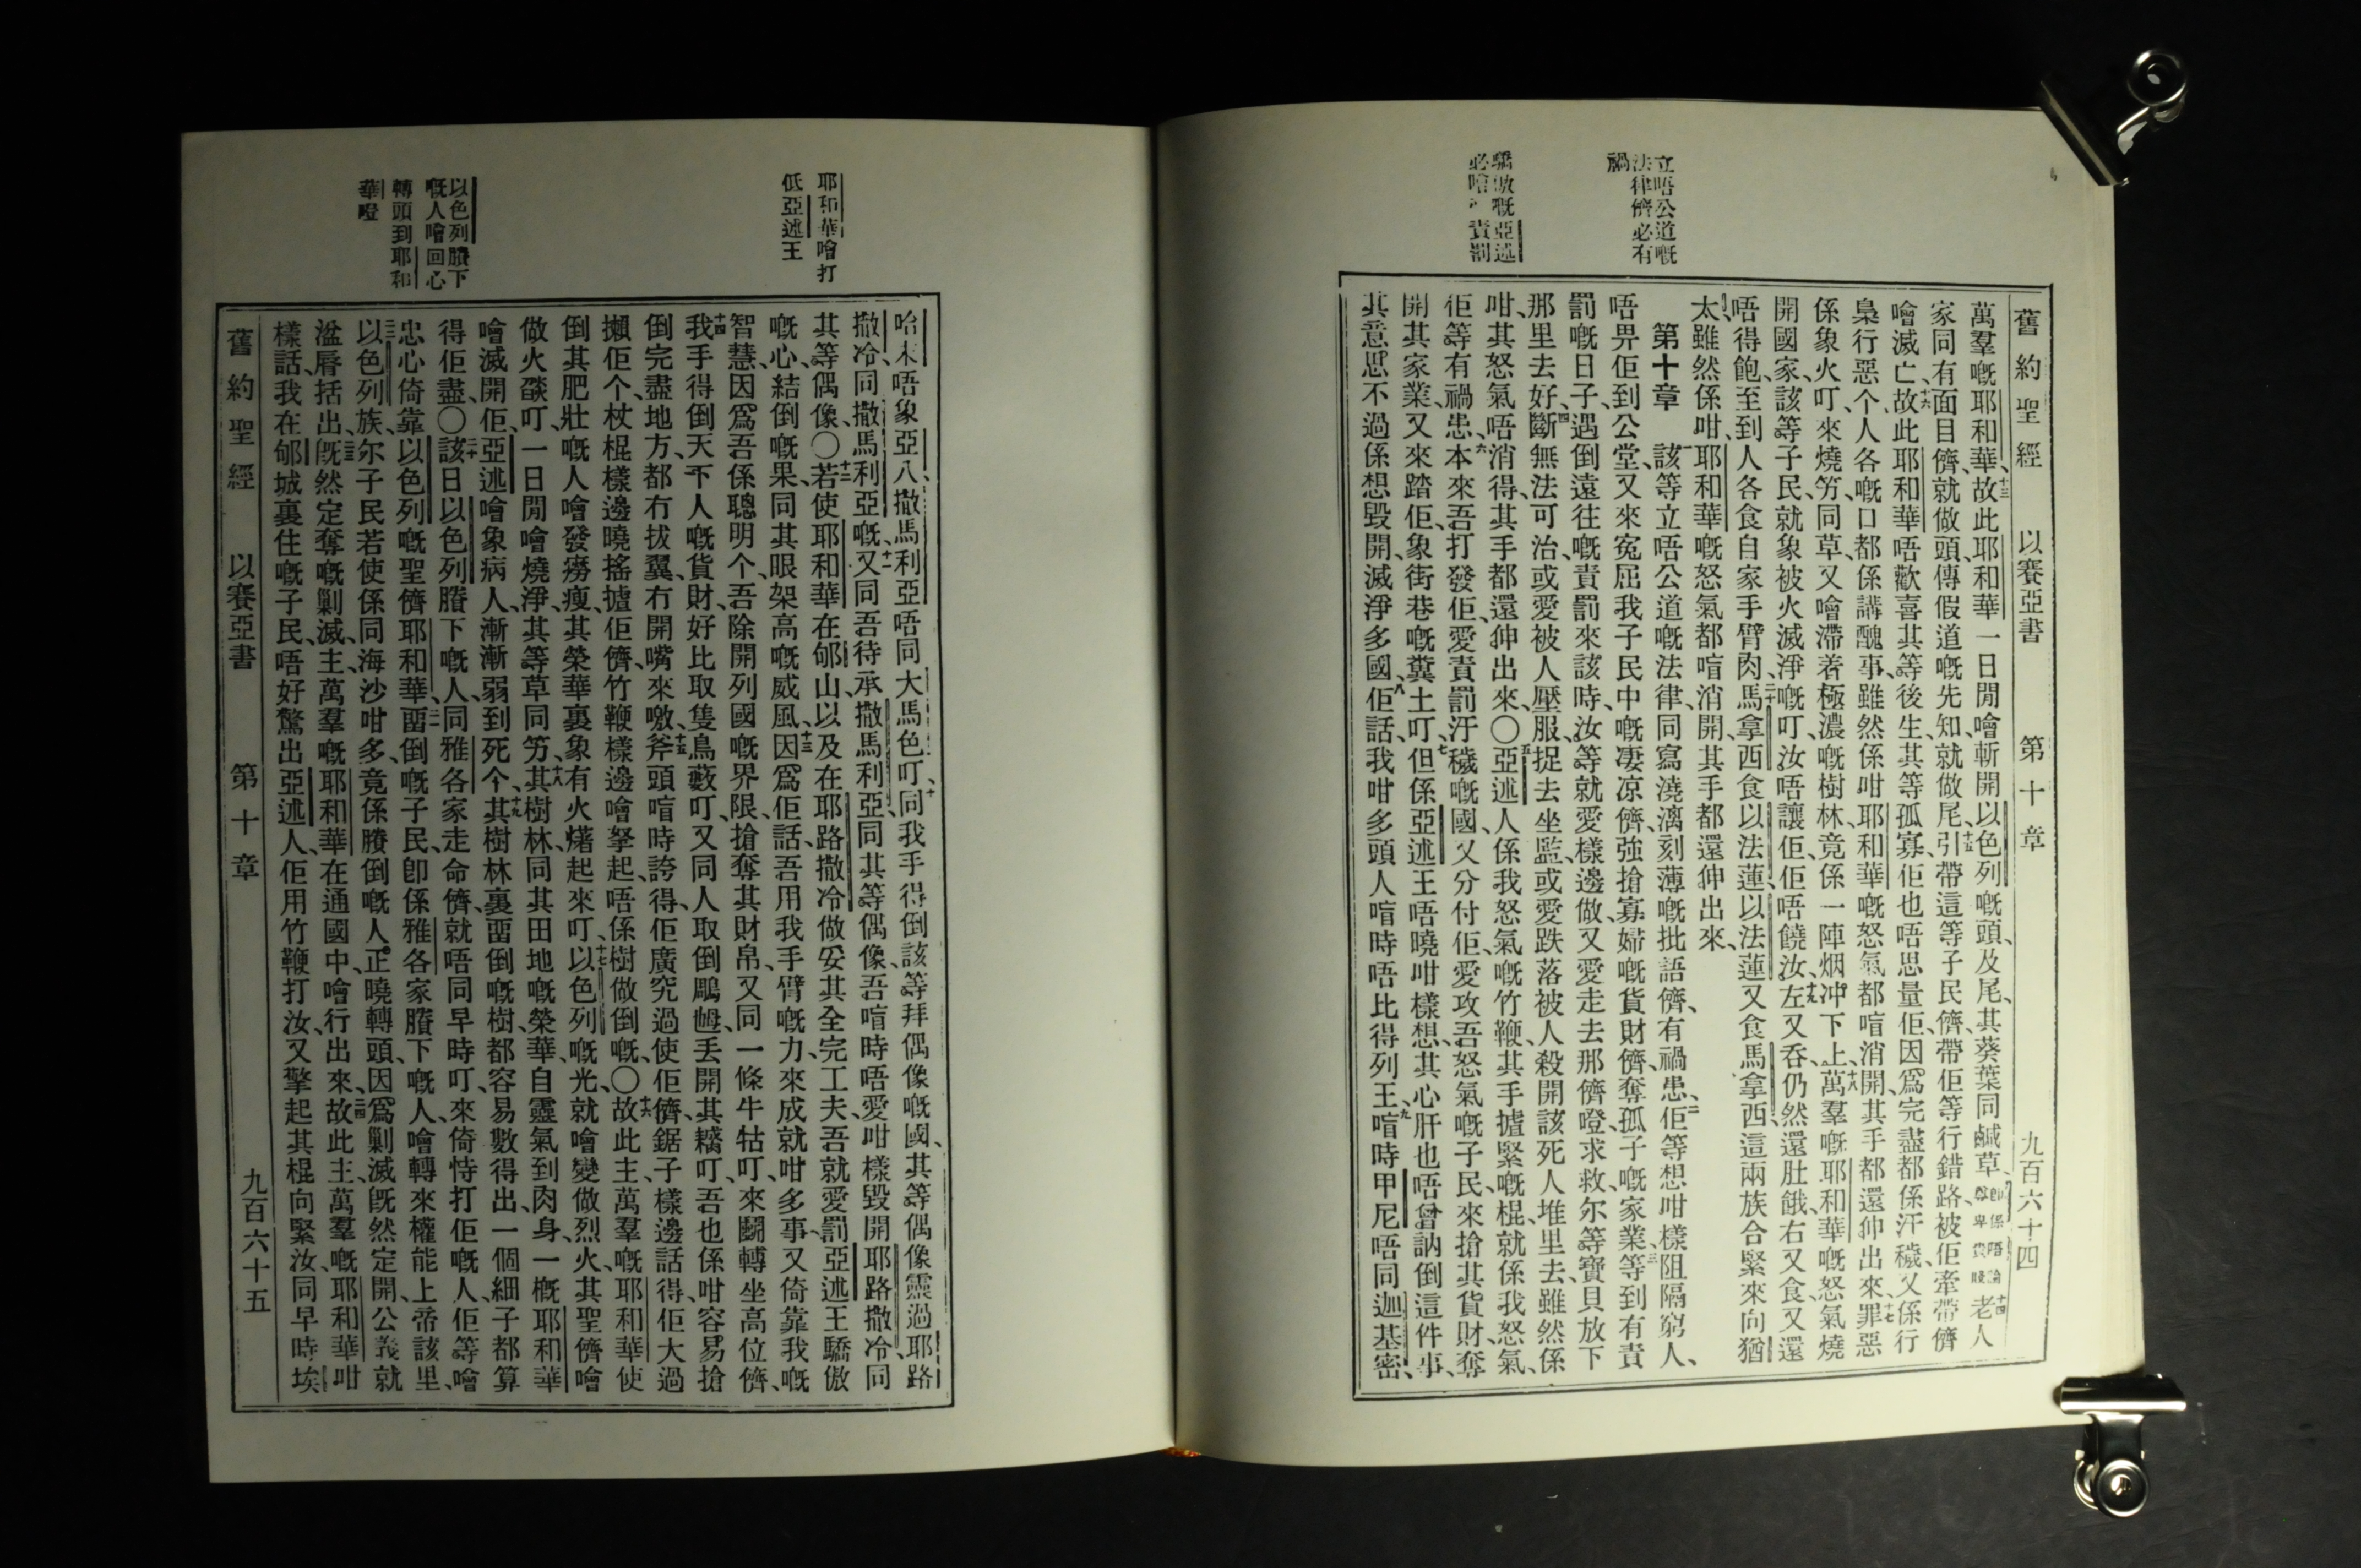 舊約聖經 以賽亞書 第十章 九百六十四
立唔公道嘅
法律儕必有
禍
驕傲嘅亞述
必噲 責罰
萬羣嘅耶和華、十三故此耶和華一日閒噲斬開以色列嘅頭、及尾、其葵葉同鹹草、卽係唔論尊卑貴賤十四老人
家同有面目儕、就做頭、傳假道嘅先知、就做尾、十五引帶這等子民儕、帶佢等行錯路、被佢牽帶儕
噲滅亡、十六故此耶和華唔歡喜其等後生、其等孤寡、佢也唔思量佢、因爲完盡都係汙穢、又係行
梟行惡个人、各嘅口都係講醜事、雖然係咁、耶和華嘅怒氣都唔消開、其手都還伸出來、十七罪惡
係象火叮、來燒竻、同草、又噲滯着極濃嘅樹林、竟係一陣烟冲下上、十八萬羣嘅耶和華嘅怒氣燒
開國家、該等子民、就象被火滅淨嘅叮、汝唔讓佢、佢唔饒汝、十九左又吞、仍然還肚餓、右又食、又還
唔得飽、至到人各食自家手臂肉、二十馬拿西食以法蓮、以法蓮又食馬拿西、這兩族合緊來向猶
太、雖然係咁、耶和華嘅怒氣都唔消開、其手都還伸出來、
第十章 一該等立唔公道嘅法律、同寫澆漓刻薄嘅批語儕、有禍患、二佢等想咁樣阻隔窮人、
唔畀佢到公堂、又來寃屈我子民中嘅凄凉儕、強搶寡婦嘅貨財儕、奪孤子嘅家業、三等到有責
罰嘅日子、遇倒遠往嘅責罰來該時、汝等就愛樣邊做、又愛走去那儕噔、求救、尔等寶貝放下
那里去好、四斷無法可治、或愛被人壓服、捉去坐監、或愛跌落被人殺開該死人堆里去、雖然係
咁、其怒氣唔消得、其手都還伸出來、〇五亞述人係我怒氣嘅竹鞭、其手揸緊嘅棍、就係我怒氣、
佢等有禍患、六本來吾打發佢、愛責罰汙穢嘅國、又分付佢、愛攻吾怒氣嘅子民、來搶其貨財、奪
開其家業、又來踏佢、象街巷嘅糞土叮、七但係亞述王唔曉咁樣想、其心肝也唔曾訥倒這件事、
其意思不過係想毀開、滅淨多國、八佢話、我咁多頭人唔時唔比得列王、九唔時甲尼唔同迦基密、
耶和華噲打
低亞述王
以色列賸下
嘅人噲回心
轉頭到耶和
華噔
哈末唔象亞八、撒馬利亞唔同大馬色叮、十同我手得倒該等拜偶像嘅國、其等偶像靈過耶路
撒冷、同撒馬利亞嘅、十一又同吾待承撒馬利亞、同其等偶像、吾唔時唔愛咁樣毀開耶路撒冷、同
其等偶像、〇十二若使耶和華在郇山、以及在耶路撒冷做妥其全完工夫、吾就愛罰亞述王驕傲
嘅心、結倒嘅果、同其眼架高嘅威風、十三因爲佢話、吾用我手臂嘅力、來成就咁多事、又倚靠我嘅
智慧、因爲吾係聰明个、吾除開列國嘅界限、搶奪其財帛、又同一條牛牯叮、來鬭轉坐高位儕、
十四我手得倒天下人嘅貨財、好比取隻鳥藪叮、又同人取倒鵰乸丟開其糯叮、吾也係咁容易搶
倒完盡地方、都冇拔翼、冇開嘴來噭、十五斧頭唔時誇得佢廣究過使佢儕、鋸子樣邊話得佢大過
攋佢个、杖棍樣邊曉搖攎佢儕、竹鞭樣邊噲拏起唔係樹做倒嘅、〇十六故此主、萬羣嘅耶和華使
倒其肥壯嘅人噲發癆瘦、其榮華裏象有火㷮起來叮、十七以色列嘅光、就噲變做烈火、其聖儕噲
做火燄叮、一日閒噲燒淨其等草同竻、十八其樹林、同其田地嘅榮華、自靈氣到肉身、一概耶和華
噲滅開佢、亞述噲象病人、漸漸弱到死个、十九其樹林裏畱倒嘅樹、都容易數得出、一個細子都算
得佢盡、〇二十該日以色列賸下嘅人、同雅各家走命儕、就唔同早時叮、來倚恃打佢嘅人、佢等噲
忠心倚靠以色列嘅聖儕耶和華、二一畱倒嘅子民、卽係雅各家賸下嘅人、噲轉來權能上帝該里、
二二以色列族、尔子民若使係同海沙咁多、竟係賸倒嘅人、正曉轉頭、因爲剿滅旣然定開、公義就
溢唇括出、二三旣然定奪嘅剿滅、主、萬羣嘅耶和華在通國中、噲行出來、二四故此主、萬羣嘅耶和華咁
樣話、我在郇城裏住嘅子民、唔好驚出亞述人、佢用竹鞭打汝、又擎起其棍向緊汝、同早時埃
舊約聖經 以賽亞書 第十章 九百六十五